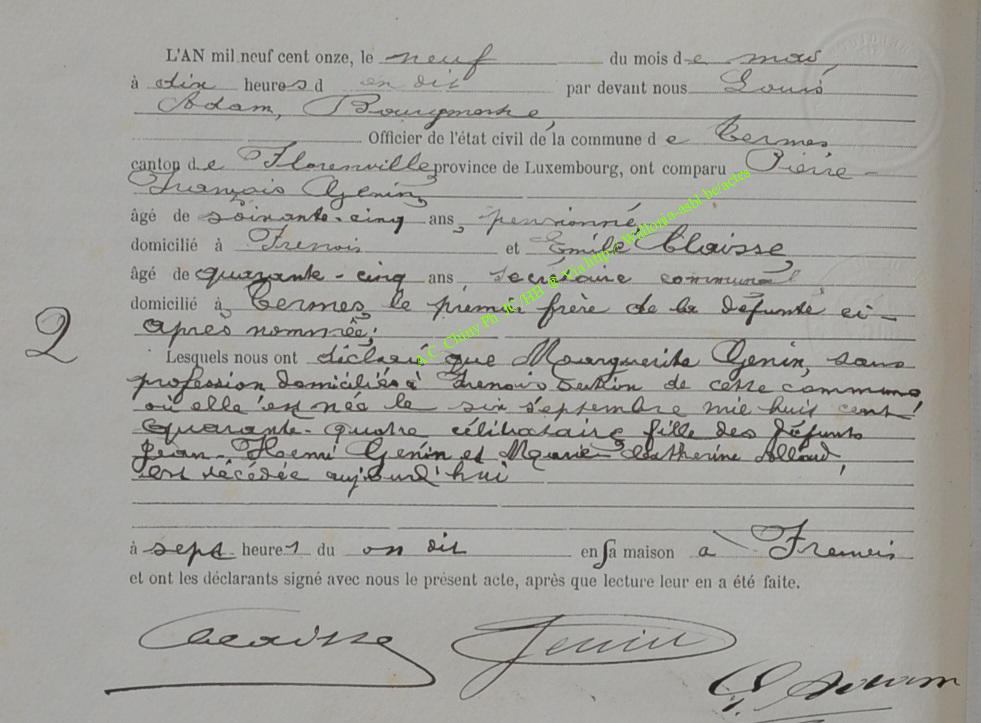 L'AN mil neuf cent onze, le neuf du mois de mai
à dix heures d on dit par devant nous Louis
Adam, Bourgmestre,
Officier de l'état civil de la commune de Termes
canton de Florenville province de Luxembourg, ont comparu Pierre-
François Genin,
âgé de soixante-cinq ans, pensionné
domicilié à Frenois et Emile Claisse,
âgé de quarante-cinq ans, secrétaire communal
domicilié à Termes, le premier frère de la défunte ci-
après nommée;
2
Lesquels nous ont déclaré que Marguerite Genin, sans
profession domiciliée à Frenois section de cette commune
où elle est née le six septembre mil huit cent
quarante-quatre célibataire fille des défunts
Jean-Henri Genin et Marie-Catherine Allard,
est décédée aujourd'hui
à sept heures du on dit en sa maison a Frenois
et ont les déclarants signé avec nous le présent acte, après que lecture leur en a été faite.
Claisse Genin
L. Adam
A.C. Chiny Ph JC HB @ Luxhttp://Wallonia-asbl.be/actes